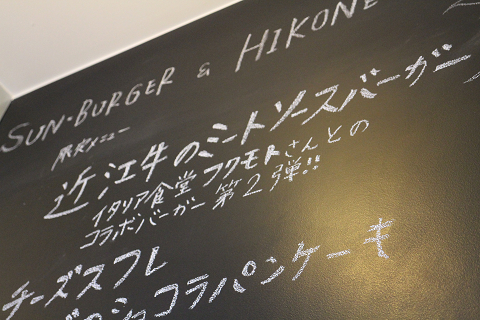 SUN·BURGER & HIKONE
限定メニュー
近江牛のミートソースバーガー
イタリア食堂フクモトさんとの
コラボバーガー第2弾!!
チーズスフレ
ショコラパンケーキ